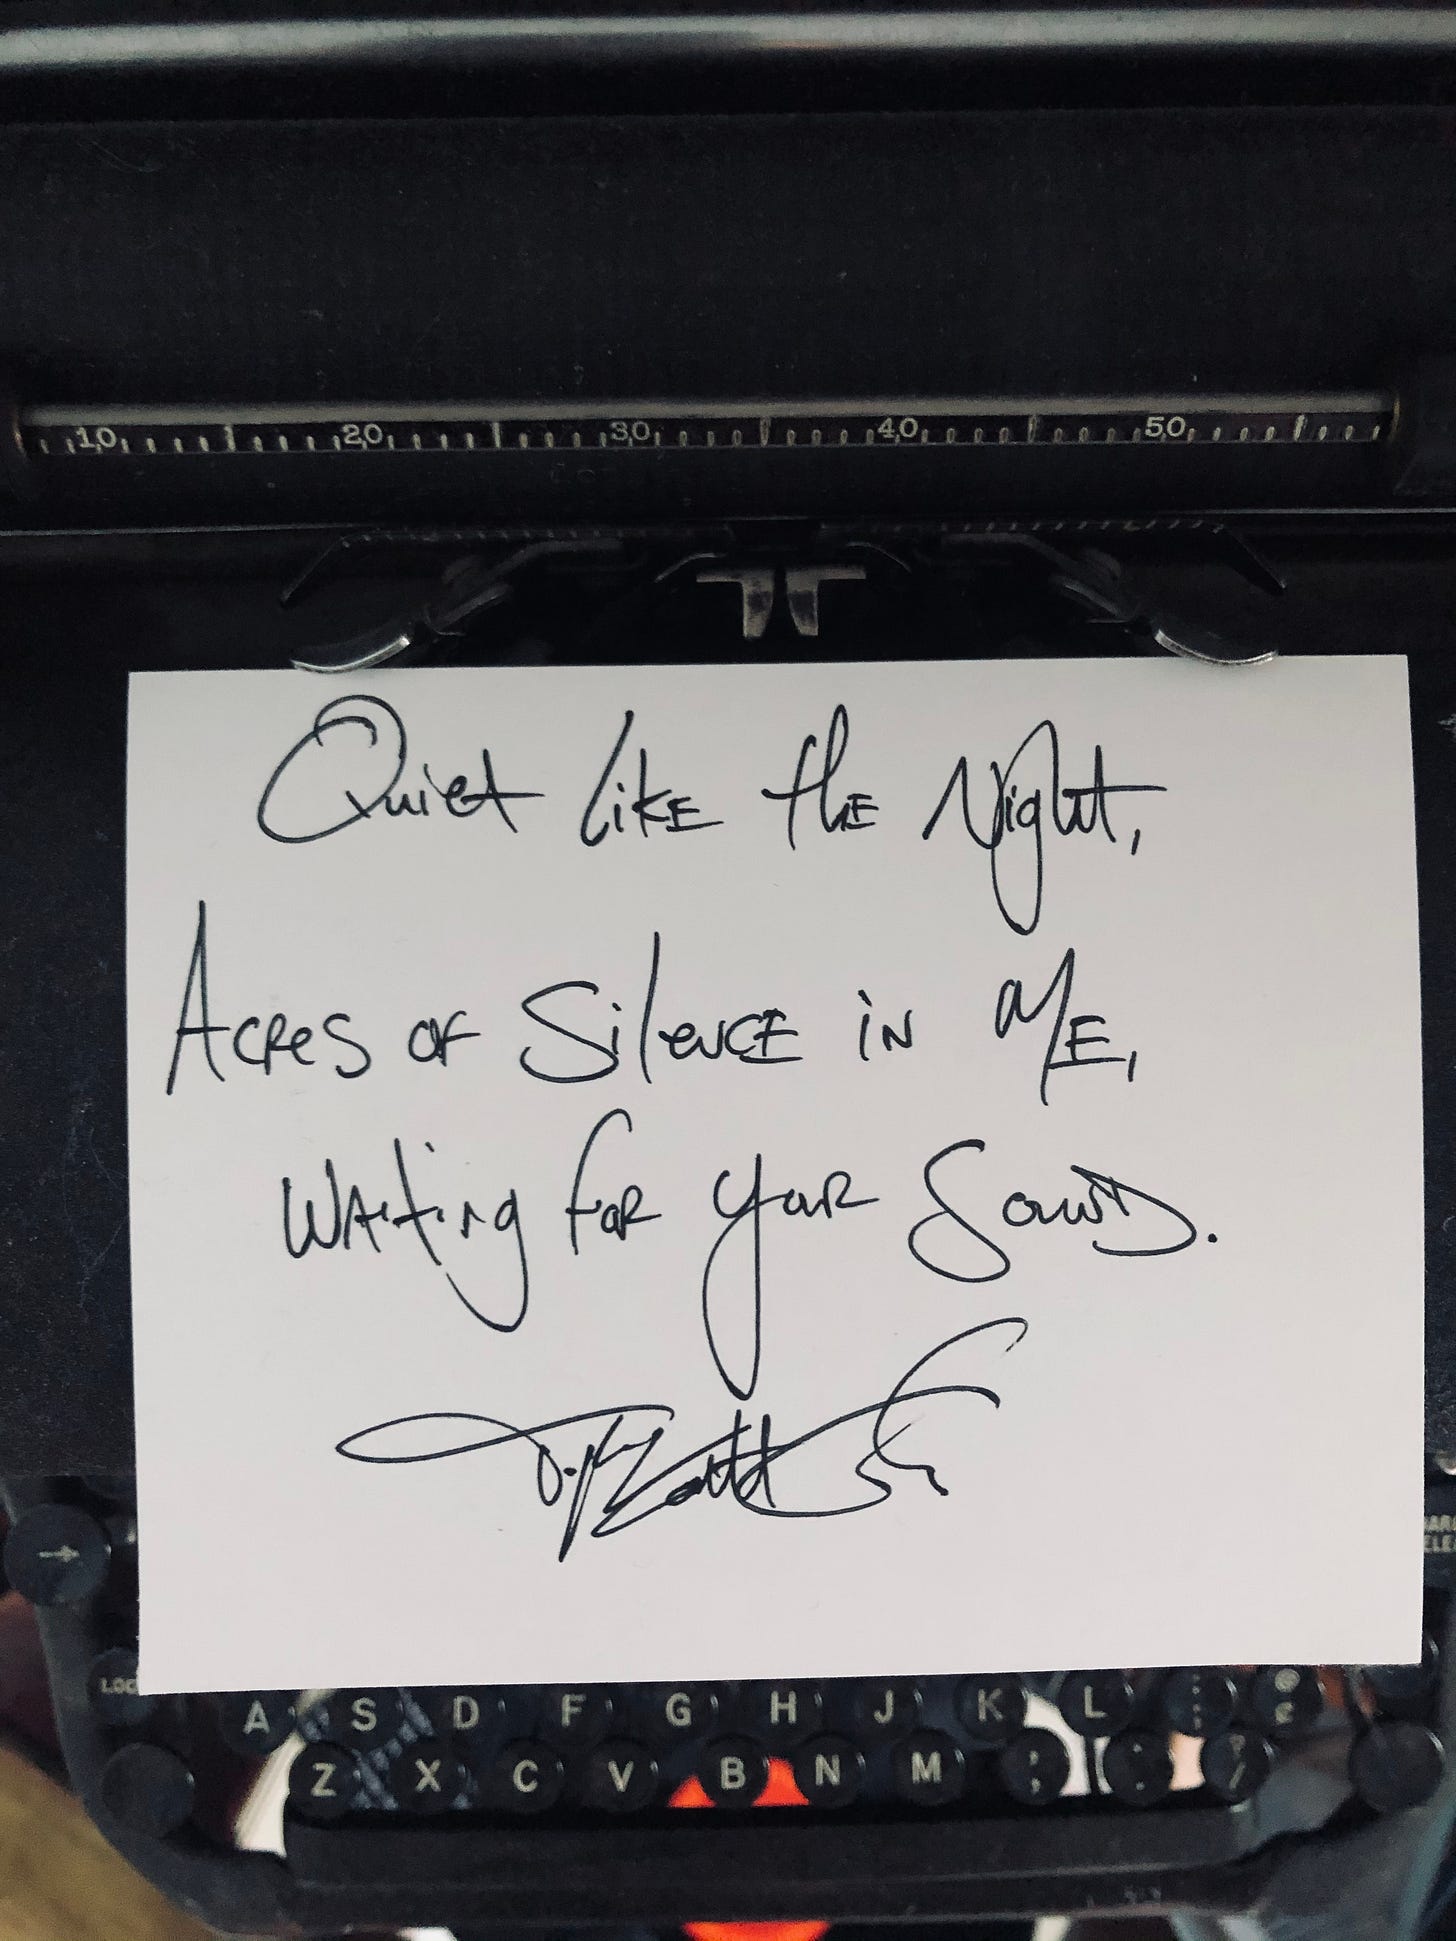 10 20 30 40 50
Quiet like the Night,
Acres of Silence in Me,
Waiting for your Sound.
→
LOC
A S D F G H J K L
Z X C V B N M